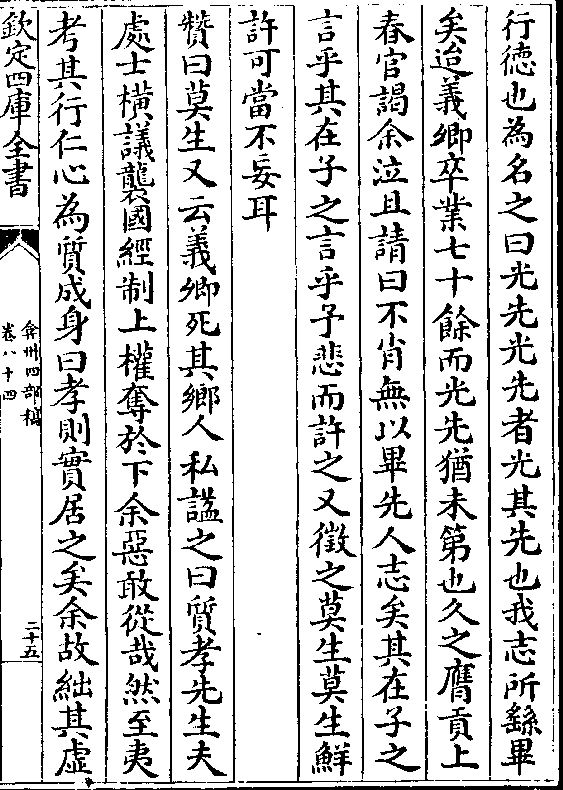 行德也為名之曰光先光先者光其先也我志所繇畢
矣迨義卿卒業七十餘而光先猶未第也久之膺貢上
春官謁余泣且請曰不肖無以畢先人志矣其在子之
言乎其在子之言乎予悲而許之又徵之莫生莫生鮮
許可當不妄耳
贊曰莫生又云義卿死其鄉人私謚之曰質孝先生夫
處士橫議襲國經制上權奪於下余惡敢從哉然至夷
考其行仁心為質成身曰孝則實居之矣余故絀其虛
欽定四庫全書
弇州四部稿
卷八十四
二十五